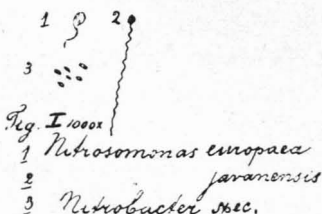 1 2
3
Fig. I 1000x
1 Nitrosomonas europaea
2 javanensis
3 Nitrobacter spec.